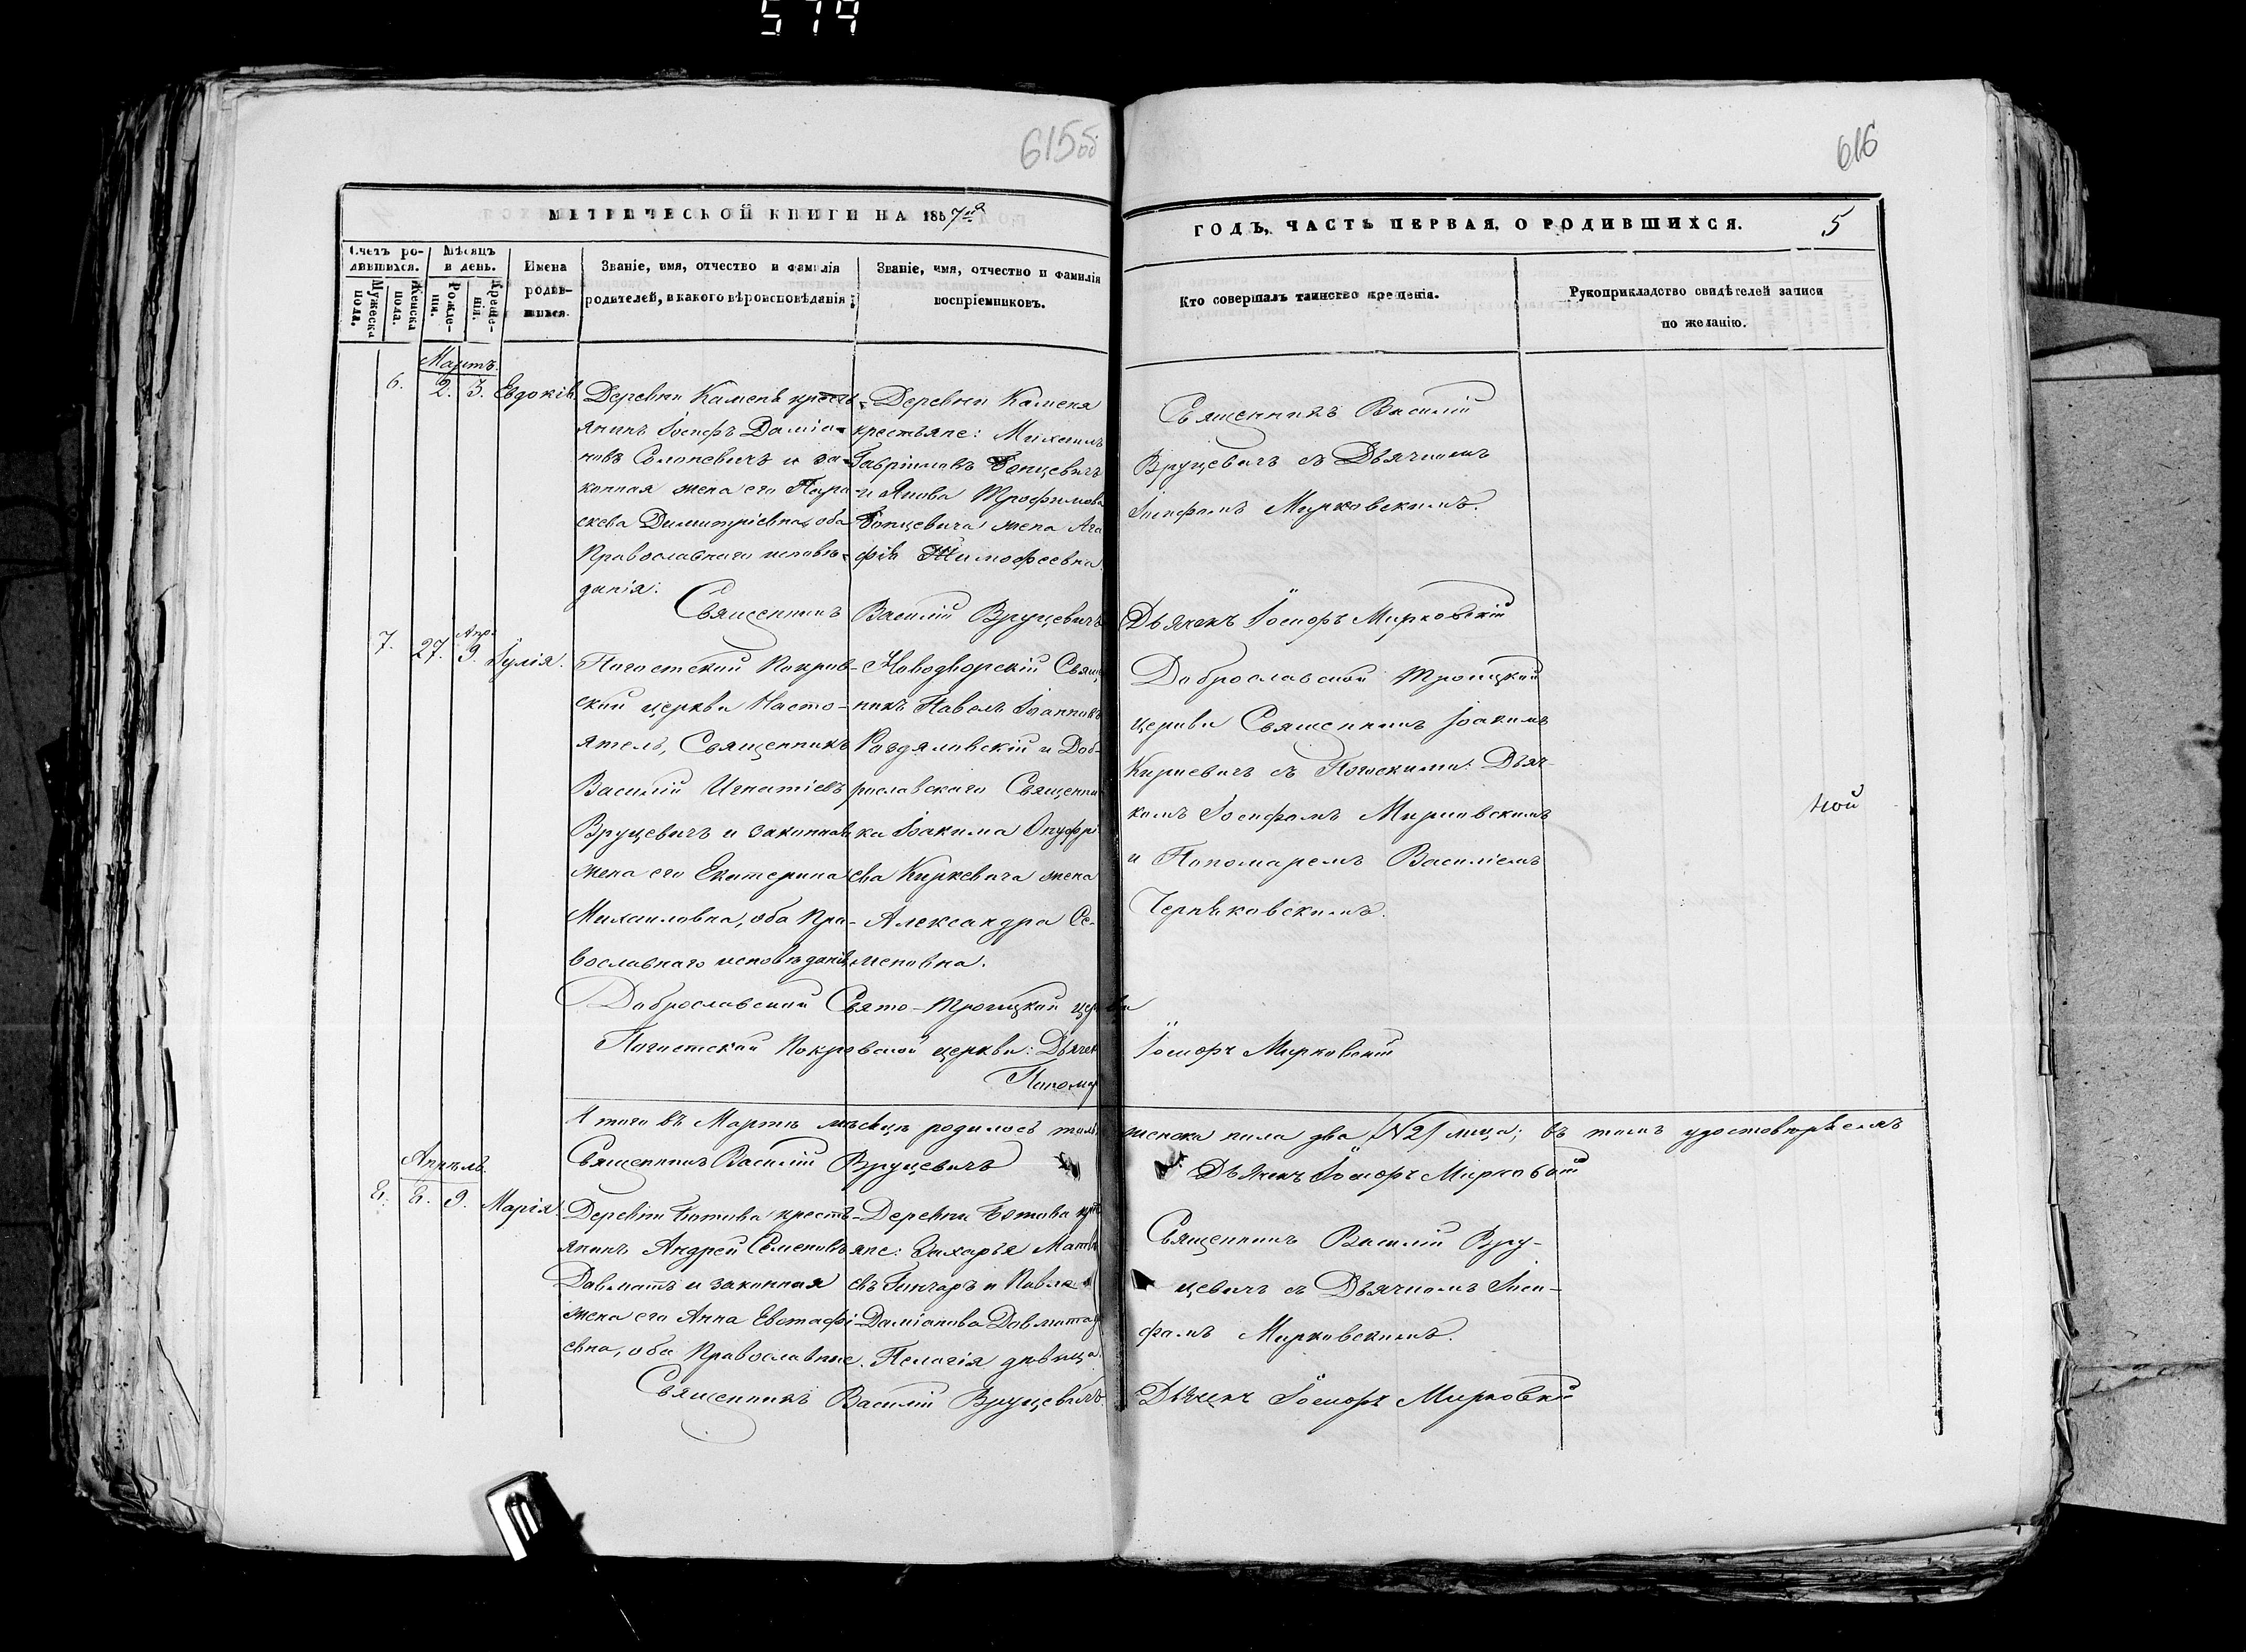 574
615 об
616
МЕТРИЧЕСКОЙ КНИГИ НА 1857й
ГОДЪ, ЧАСТЬ ПЕРВАЯ, О РОДИВШИХСЯ.
5
Счетъ ро-
дившихся.
Мужеска
пола.
Женска
пола.
Мѣсяцъ
и день.
Рожде-
нія.
Креще-
нія.
Имена
родив-
шихся.
Званіе, имя, отчество и фамилія
родителей, и какого вѣроисповѣданія
Званіе, имя, отчество и фамилія
воспріемниковъ.
Кто совершалъ таинство крещенія.
Рукоприкладство свидѣтелей записи
по желанію.
Мартъ.
6. 2. 3. Евдокія.
Деревни Каменя кресть-
янинъ Іосифъ Даміа-
новъ Солоневичъ и за-
конная жена его Пара-
скева Димитріевна, оба
Православнаго исповѣ-
данія:
Деревни Каменя
крестьяне: Михаилъ
Гавріиловъ Бопцевичъ
и Якова Трофимова
Бопцевича жена Ага
фія Тимофеевна.
Священникъ Василій
Вруцевичъ съ Дьячкомъ
Іосифомъ Мирковскимъ.
Священникъ Василій Вруцевичъ
Дьячекъ Іосифъ Мирковскій
7. 27. Апр. 9. Іулія.
Погостской Покров-
ской церкви Насто-
ятель, Священникъ
Василій Игнатіевъ
Вруцевичъ и законная
жена его Екатерина
Михаиловна, оба Пра-
вославнаго исповѣданія.
Новодворскій Свящ
никъ Павелъ Іоанновъ
Раздяловскій и Доб-
рославскаго Священни
ка Іоакима Онуфрі
ева Киркевича жена
Александра Се-
меновна.
Доброславской Троицкой
церкви Священникъ Іоакимъ
Киркевичъ съ Погоскими: Дьяч-
комъ Іосифомъ Мирковскимъ
и Пономаремъ Василіемъ
Черняковскимъ.
ной
Доброславской Свято-Троицкой церкви
Погостской Покровской церкви: Дьячек
Іосифъ Мирковскій
Поном
Итого въ Мартѣ мѣсяцѣ родилось
женска пола два /№2/ лица; въ томъ удостовѣряемъ
Священникъ Василій Вруцевичъ
Дьячекъ Іосифъ Мирковскій
Апрѣль.
8. 8. 9. Марія.
Деревни Ботова кресть-
янинъ Андрей Семеновъ
Давматъ и законная
жена его Анна Евстафі-
евна, оба Православные.
Деревни Ботова кре
яне: Захарія Матѳ
евъ Гончаръ и Павла
Даміанова Давмата
Пелагія дѣвица.
Священникъ Василій Вру-
цевичъ съ Дьячкомъ Іоси-
фомъ Мирковскимъ.
Священникъ Василій Вруцевичъ.
Дьячекъ Іосифъ Мирковскій